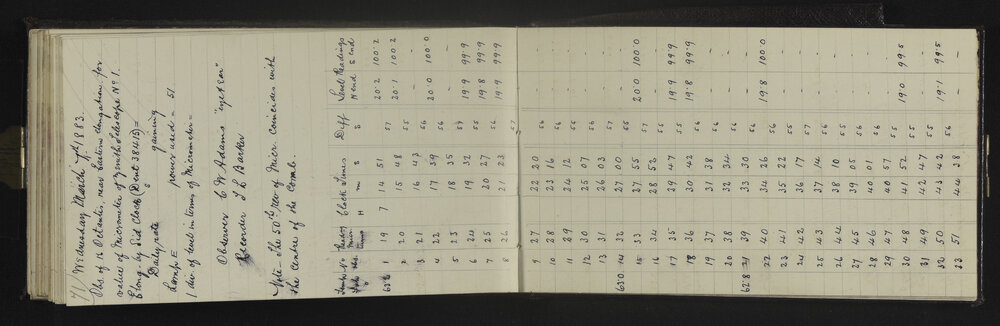 Wednesday March 7th 1883.
Obs of 16 Octantis, near Eastern elongation, for
value of Micrometer of Zenith telescope No 1.
Elong. by Sid Clock (Dent 38415) =
Daily rate gaining
Lamp E power used = 51
1 div of level in terms of Micrometer =
Observer C W Adams "eye & ear"
Recorder J L Barker
Note. The 50th rev of Micr. coincides with
the centre of the Comb.
Clock Times Diff Level Readings
H m s s N end S end
1 19 7 14 51 57 20.2 100.2
2 20 15 48 55 20.1 100.2
3 21 16 43 56 - -
4 22 17 39 56 20.0 100.0
5 23 18 35 57 - -
6 24 19 32 55 19.9 99.9
7 25 20 27 56 19.8 99.9
8 26 21 23 57 19.9 99.9
9 27 22 20 56 - -
10 28 23 16 56 - -
11 29 24 12 55 - -
12 30 25 07 56 - -
13 31 26 03 57 - -
63.0 14 32 27 00 55 - -
15 33 27 55 57 20.0 100.0
16 34 28 52 55 - -
17 35 29 47 55 19.9 99.9
18 36 30 42 56 19.8 99.9
19 37 31 38 56 - -
20 38 32 34 56 - -
62.8 21 39 33 30 56 - -
22 40 34 26 56 19.8 100.0
23 41 35 22 55 - -
24 42 36 17 57 - -
25 43 37 14 56 - -
26 44 38 10 55 - -
27 45 39 05 56 - -
28 46 40 01 56 - -
29 47 40 57 55 - -
30 48 41 52 55 19.0 99.5
31 49 42 47 55 - -
32 50 43 42 56 19.1 99.5
33 51 44 38 - -